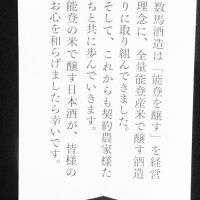 数馬酒造は「能登を醸す」を経営
理念に、全量能登産米で醸す酒造
りに取り組んできました。
そして、これからも契約農家様た
ちと共に歩んでいきます。
能登の米で醸す日本酒が、皆様の
お心を和らげましたら幸いです。